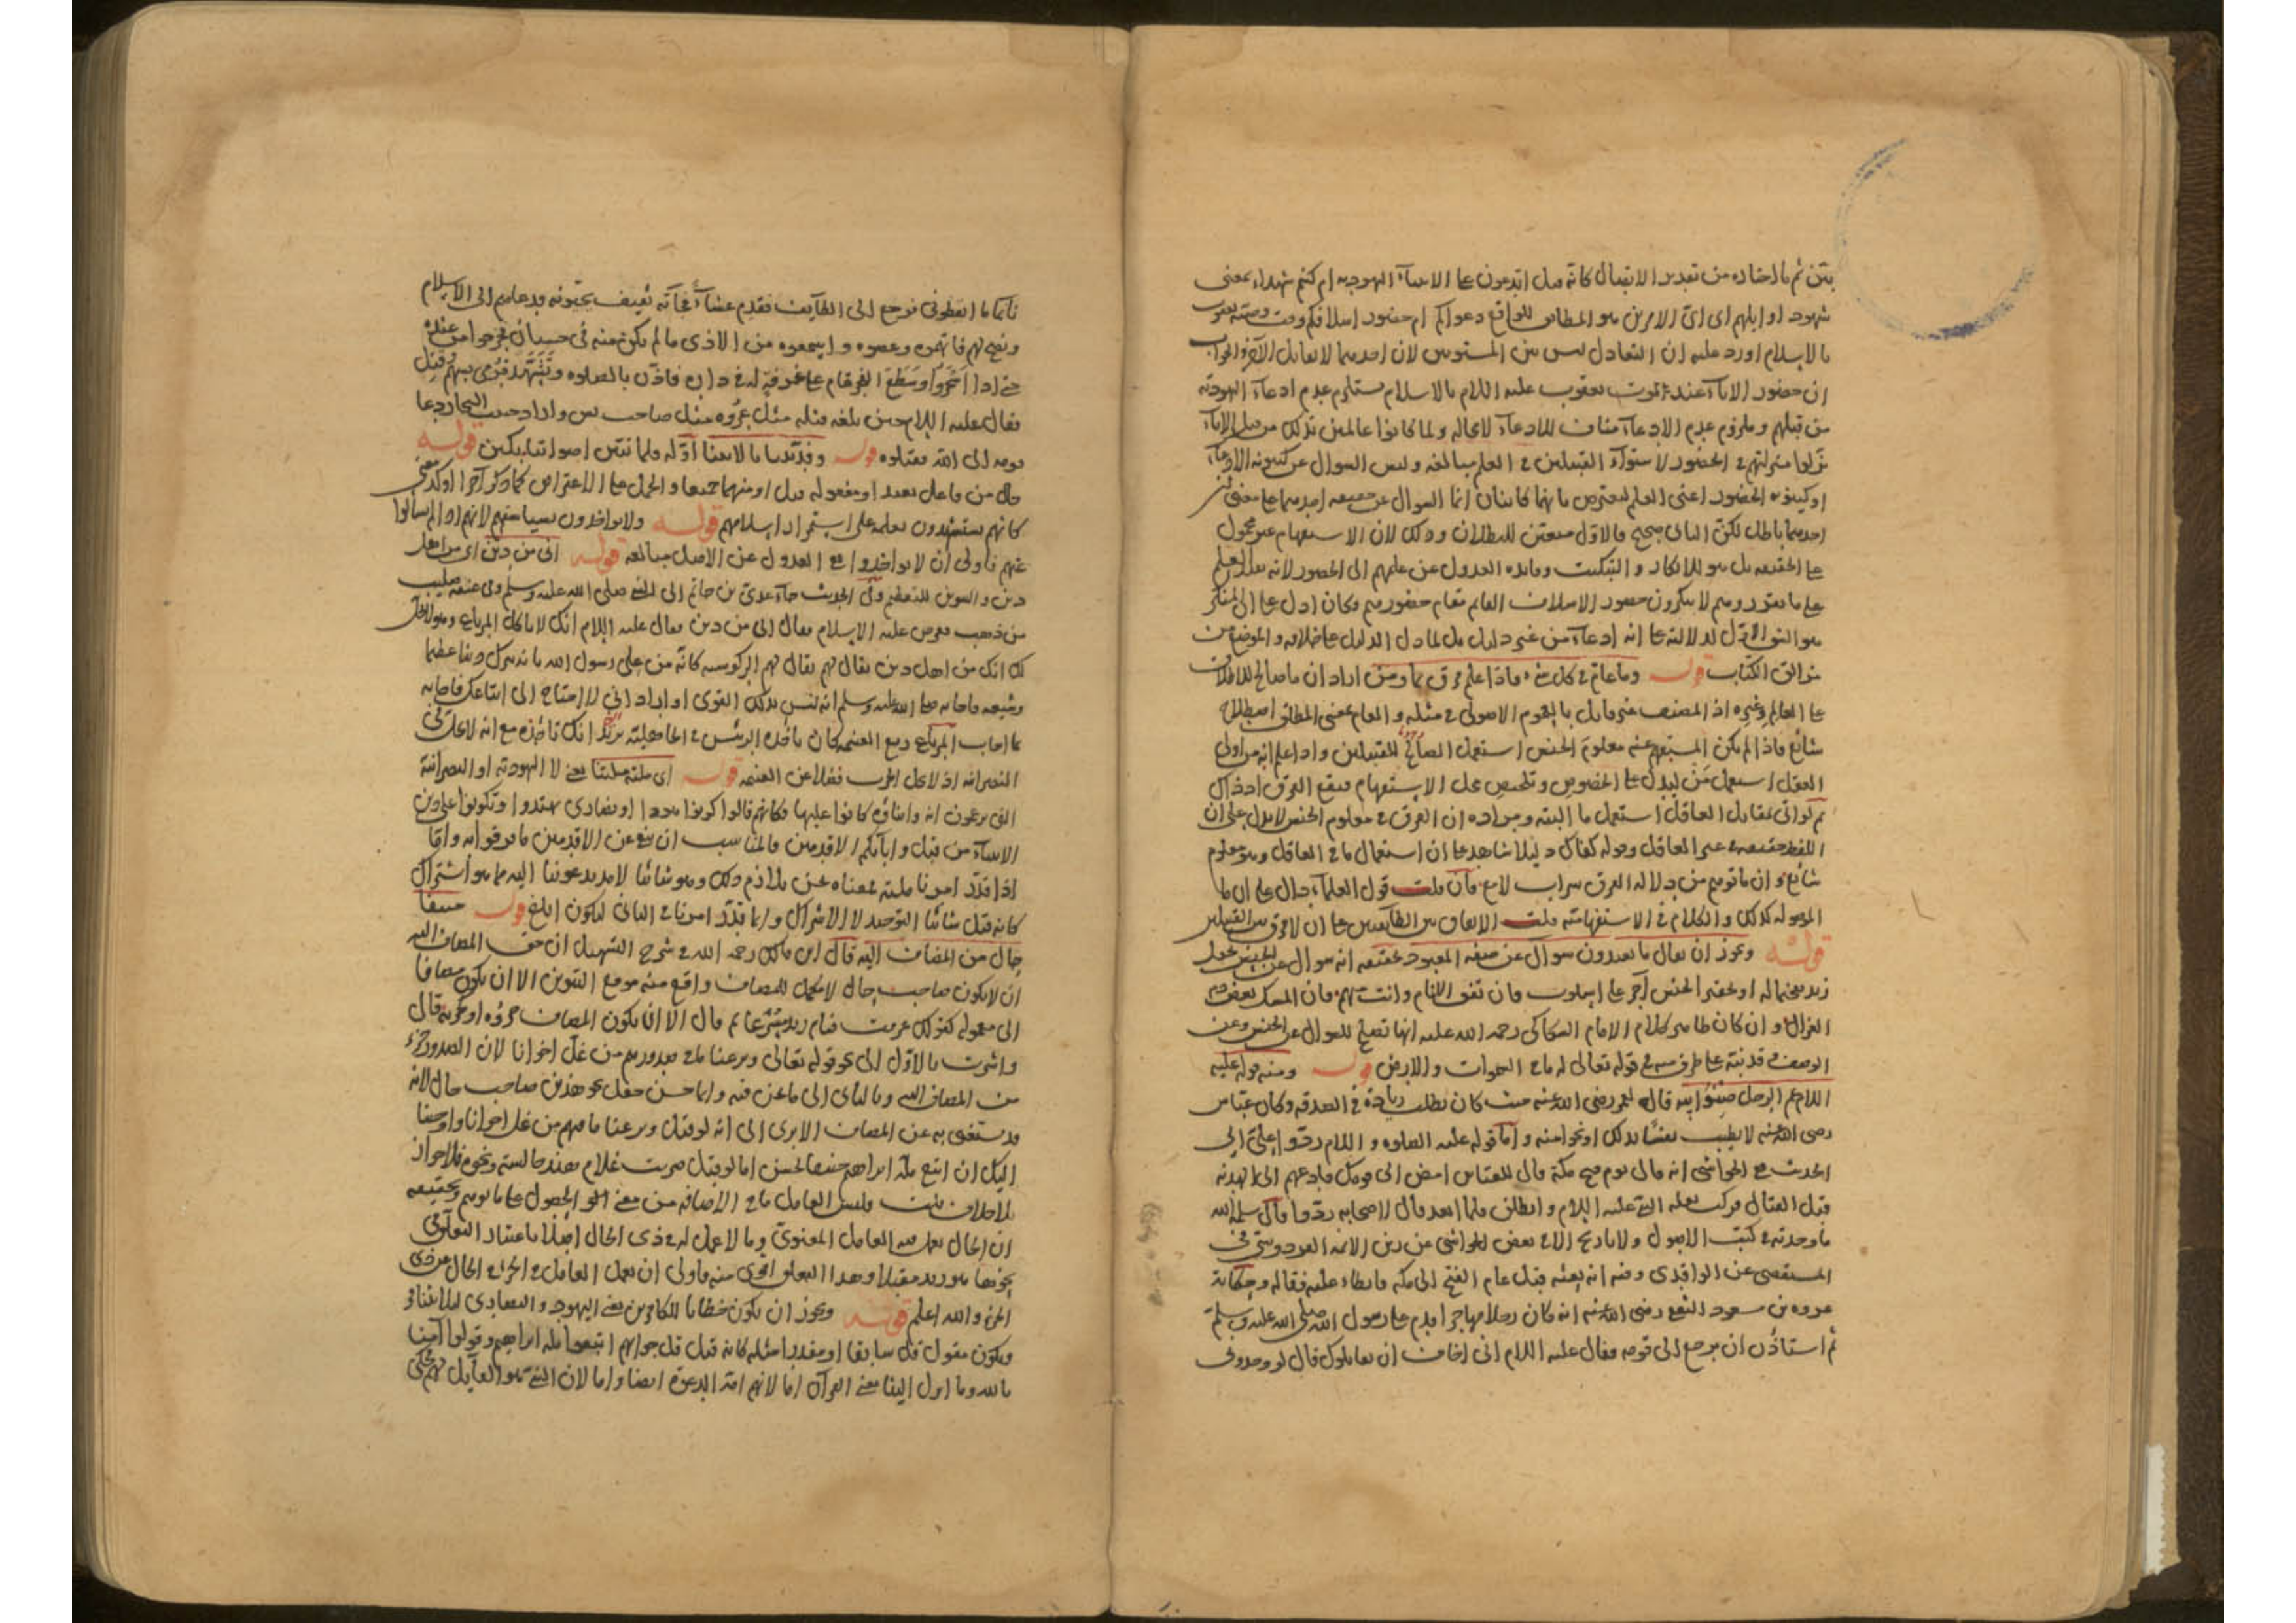 بيّن ثم ما اختاره من تقدير الاتصال كانه قيل اتدعون على الانبياء اليهوديه ام كنتم شهداء بمعنى
شهود اوايلهم اى اىّ الامرين هو المطابق للواقع دعواكم ام حضور اسلافكم وقت وصيته يعقوب
بالاسلام اورد عليه ان التعادل ليس بين المستويين لان احدهما لا يقابل الآخر والجواب
ان حضور الاباء عند موت يعقوب عليه السلام بالاسلام يستلزم عدم ادعاء اليهوديه
من قبلهم وملزوم عدم الادعاء مناف للادعاء لا محاله ولما كانوا عالمين بذلك من قبل الاباء
نزلوا منزلتهم فى الحضور لاستواء القبيلين فى العلم مبالغه وليس السوال عن كينونه الادعاء
او كينونه الحضور اعنى العلم ليعترض بانهما كاينان انما السوال عن حقيقه احديهما على معنى
احديهما باطل لكن الثانى صحيح فالاول متعين للبطلان وذلك لان الاستفهام غير محمول
على الحقيقه بل هو للانكار والتبكيت وفايده العدول عن علمهم الى الحضور لانه
على ما تقرر وهم لا ينكرون حضور الاسلاف القايم مقام حضورهم وكان ادل على
هو الشق الاول لدلالته على انه ادعاء من غير دليل بل لما دل الدليل على خلافه والموضع من
مزالق الكتاب قوله وما عام فى كل شىء فاذا علم فرق بما ومن اراد ان ما صالح للاطلاق
على العالم وغيره اذ المصنف غير قايل بالعموم الاصولى فى مثله والعام بمعنى المطلق اصطلاح
شائع فاذا لم يكن المستفهم عنه معلوم الجنس استعمل الصالح للقبيلين واذا علم انه من اولى
العقل استعمل مَن ليدل على الخصوص وتلخيص محل الاستفهام فيقع الفرق اذ ذاك
ثم لو اتى بمقابل العاقل استعمل ما البته ومراده ان الفرق فى معلوم الجنس لا يدل على ان
اللفظ حقيقه فى غير العاقل وقوله كفاك دليلا شاهد على ان استعمال ما فى العاقل وغيره
شائع وان ما توهم من دلاله الفرق سراب لامع فان قلت قول العلماء دال على ان ما
الموصوله كذلك والكلام فى الاستفهاميه قلت الاتفاق من الطائفتين على ان لا فرق بين القبيلين
قوله ويجوز ان يقال ما تعبدون سوال عن صفه المعبود تحقيقه انه سوال عن الجنس
زيد او تحقير الجنس آخر على اسلوب فان تفق الانام وانت منهم فان المسك بعض دم
الغزال وان كان ظاهر كلام الامام السكاكى رحمه الله عليه انها تصلح للسوال عن الجنس وعن
الوصف قد نبه على طرف منه فى قوله تعالى له ما فى السموات والارض قوله ومنه قوله عليه
السلام عم الرجل صنو ابيه قال لعمر رضى الله عنه حيث كان يطلب زيادة فى الصدقه وكان عباس
رضى الله عنه لا يطيب نفسًا بذلك او نحوا منه واما قوله عليه الصلوه والسلام ردوا علىّ ابى
الحديث فى الحواشى انه قال يوم فتح مكة قال للعباس امض الى قومك فادعهم الى الهدنه
قبل القتال فركب بغله النبى عليه السلام وانطلق فلما ابعد قال لاصحابه ردوا
ما وجدته فى كتب الاصول ولا تاريخ الا فى بعض الحواشى عن زين الائمه الفردوسى فى
المستقصى عن الواقدى وفيه انه بعثه قبل عام الفتح الى مكه فابطاء عليه فقاله وحكاية
عروه بن مسعود الثقفى رضى الله عنه انه كان رجلا مهاجرا قدم على رسول الله صلى الله عليه وسلم
ثم استاذن ان يرجع الى قومه فقال عليه السلام انى اخاف ان يقاتلوك قال لو وجدونى
نائما ما ايقظونى فرجع الى الطائف فقدم عشاءً فجاءته ثقيف يحيّونه فدعاهم الى الاسلام
ونصح لهم فاتهموه وعصوه واسمعوه من الاذى ما لم يكن منه فى حسبان فخرجوا من عنده
حتى اذا اسحروا وسطع الفجر قام على غرفة له فى داره فاذّن بالصلوه وتشهد فرمى بسهم وقتل
فقال عليه السلام حين بلغه قتله مثل عروه مثل صاحب يس واراد حبيب النجار دعا
قومه الى الله فقتلوه قوله وفدّيننا بالابينا اوّله فلما تبين اصواتنا بكين قوله
حال من فاعل نعبد او مفعوله قيل او منهما جميعا والحمل على الاعتراض كما ذكر آخرا اوكد
كانهم يستشهدون بعلمه على استمرار اسلامهم قوله ولا يواخذون بسيأتهم لانهم اذا لم يسألوا
عنهم فاولى ان لا يواخذوا فى العدول عن الاصل مبالغه قوله انى من دين اى من اهل
دين والتنوين للتعظيم وفى الحديث جاء عدى بن حاتم الى النبى صلى الله عليه وسلم وفى عنقه صليب
من ذهب فعرض عليه الاسلام فقال انى من دين فقال عليه السلام انك لا تاكل المرباع وهو لا يحل
لك انك من اهل دين يقال لهم يقال لهم الركوسيه كانه منّ على رسول الله
وشيعه فاجابه صلى الله عليه وسلم انه ليس بذلك القوى او اراد انى لا احتاج الى اتباعك فاجابه
بما اجاب المرباع ربع الغنيمه كان ياخذه الرئيس فى الجاهلية يريد انك تاخذه مع انه لا يحل فى
النصرانيه اذ لا يحل الحرب فضلا عن الغنيمه قوله اى ملته ملتنا يعنى لا اليهوديه او النصرانية
التى يدعون انه وابناؤه كانوا عليها فكانهم قالوا كونوا هودا او نصارى تهتدوا وتكونوا على دين
الانبياء من قبل وابائكم الاقدمين فالمناسب ان ينفى عن الاقدمين ما قرفوا به واما
اذا قدّر امرنا ملته فمعناه نحن ملازم ذلك وهو شاننا لا ما تدعوننا اليه مما هو اشتراك
كانه قيل شاننا التوحيد لا الاشراك وانما قدّر امرنا فى الثانى ليكون ابلغ قوله حنيفا
حال من المضاف اليه قال ابن مالك رحمه الله فى شرح التسهيل ان حق المضاف اليه
ان لا يكون صاحب حال لانه مكمل للمضاف واقع منه موقع التنوين الا ان يكون مضافا
الى معموله كقولك عرفت قيام زيد مسرعا ثم قال الا ان يكون المضاف جزوه او كجزيه قال
واشرت بالاول الى نحو قوله تعالى ونزعنا ما فى صدورهم من غل اخوانا لان الصدور جزء
من المضاف اليه وبالثانى الى ما نحن فيه وانما حسن جعل نحو هذين صاحب حال لانه
قد يستغنى به عن المضاف الا يرى الى انه لو قيل ونزعنا ما فيهم من غل اخوانا واوحينا
اليك ان اتبع ابراهيم حنيفا لحسن اما لو قيل ضربت غلام هند جالسة ونحوه فلا جواز
بلا خلاف قلت وليس العامل ما فى الاضافه من معنى على ما توهم وتحقيقه
ان الحال يعمل فيه العامل المعنوى وما لا عمل له فى ذى الحال اصلا باعتبار التعلق فى
نحو هو زيد مقبلا وهذا التعلق اقوى منه فاولى ان يعمل العامل فى الجزء الحال عن ذى
الجزء والله اعلم قوله ويجوز ان يكون خطابا للكافرين يعنى اليهود والنصارى
ويكون مقول قل سابقا او مقدرا مثله كانه قيل قل جوابهم اتبعوا مله ابراهيم وقولوا آمنا
بالله وما انزل الينا يعنى القرآن اما لانهم امة الدعوة ايضا واما لان النبى هو القايل